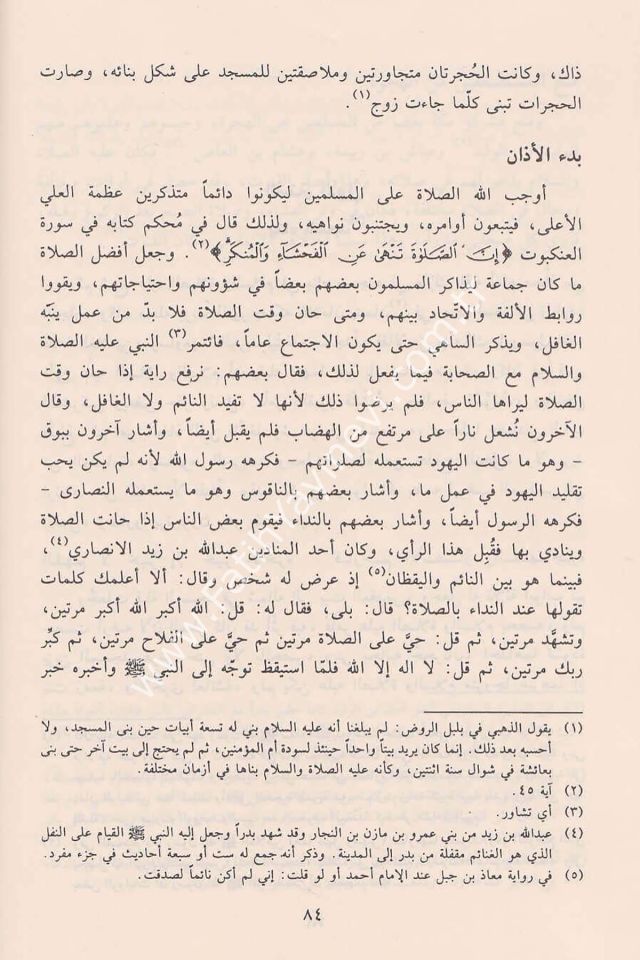 ذاك، وكانت الحُجرتان متجاورتين وملاصقتين للمسجد على شكل بنائه، وصارت
الحجرات تبنى كلّما جاءت زوج(١).
بدء الأذان
أوجب الله الصلاة على المسلمين ليكونوا دائماً متذكرين عظمة العلي
الأعلى، فيتبعون أوامره، ويجتنبون نواهيه، ولذلك قال في مُحكم كتابه في سورة
العنكبوت ﴿إِنَّ الصَّلَوٰةَ تَنْهَىٰ عَنِ الْفَحْشَاءِ وَالْمُنكَرِ﴾(٢). وجعل أفضل الصلاة
ما كان جماعة ليذاكر المسلمون بعضهم بعضاً في شؤونهم واحتياجاتهم، ويقووا
روابط الألفة والاتّحاد بينهم، ومتى حان وقت الصلاة فلا بدّ من عمل ينبّه
الغافل، ويذكر الساهي حتى يكون الاجتماع عاماً، فائتمر(٣) النبي عليه الصلاة
والسلام مع الصحابة فيما يفعل لذلك، فقال بعضهم: نرفع راية إذا حان وقت
الصلاة ليراها الناس، فلم يرضوا ذلك لأنها لا تفيد النائم ولا الغافل، وقال
الآخرون نُشعل ناراً على مرتفع من الهضاب فلم يقبل أيضاً، وأشار آخرون ببوق
- وهو ما كانت اليهود تستعمله لصلواتهم - فكرهه رسول الله لأنه لم يكن يحب
تقليد اليهود في عمل ما، وأشار بعضهم بالناقوس وهو ما يستعمله النصارى -
فكرهه الرسول أيضاً، وأشار بعضهم بالنداء فيقوم بعض الناس إذا حانت الصلاة
وينادي بها فقُبِل هذا الرأي، وكان أحد المنادين عبدالله بن زيد الانصاري(٤)،
فبينما هو بين النائم واليقظان(٥) إذ عرض له شخص وقال: ألا أعلمك كلمات
تقولها عند النداء بالصلاة؟ قال: بلى، فقال له: قل: الله أكبر الله أكبر مرتين،
وتشهَّد مرتين، ثم قل: حيَّ على الصلاة مرتين ثم حيَّ على الفلاح مرتين، ثم كبِّر
ربك مرتين، ثم قل: لا اله إلا الله فلمّا استيقظ توجّه إلى النبي ﷺ وأخبره خبر
(١) يقول الذهبي في بلبل الروض: لم يبلغنا أنه عليه السلام بني له تسعة أبيات حين بنى المسجد، ولا
أحسبه بعد ذلك. إنما كان يريد بيتاً واحداً حينئذ لسودة أم المؤمنين، ثم لم يحتج إلى بيت آخر حتى بنى
بعائشة في شوال سنة اثنتين، وكأنه عليه الصلاة والسلام بناها في أزمان مختلفة.
(٢) آية ٤٥.
(٣) أي تشاور.
(٤) عبدالله بن زيد من بني عمرو بن مازن بن النجار وقد شهد بدراً وجعل إليه النبي ﷺ القيام على النفل
الذي هو الغنائم مقفلة من بدر إلى المدينة. وذكر أنه جمع له ست أو سبعة أحاديث في جزء مفرد.
(٥) في رواية معاذ بن جبل عند الإمام أحمد أو لو قلت: إني لم أكن نائماً لصدقت.
٨٤